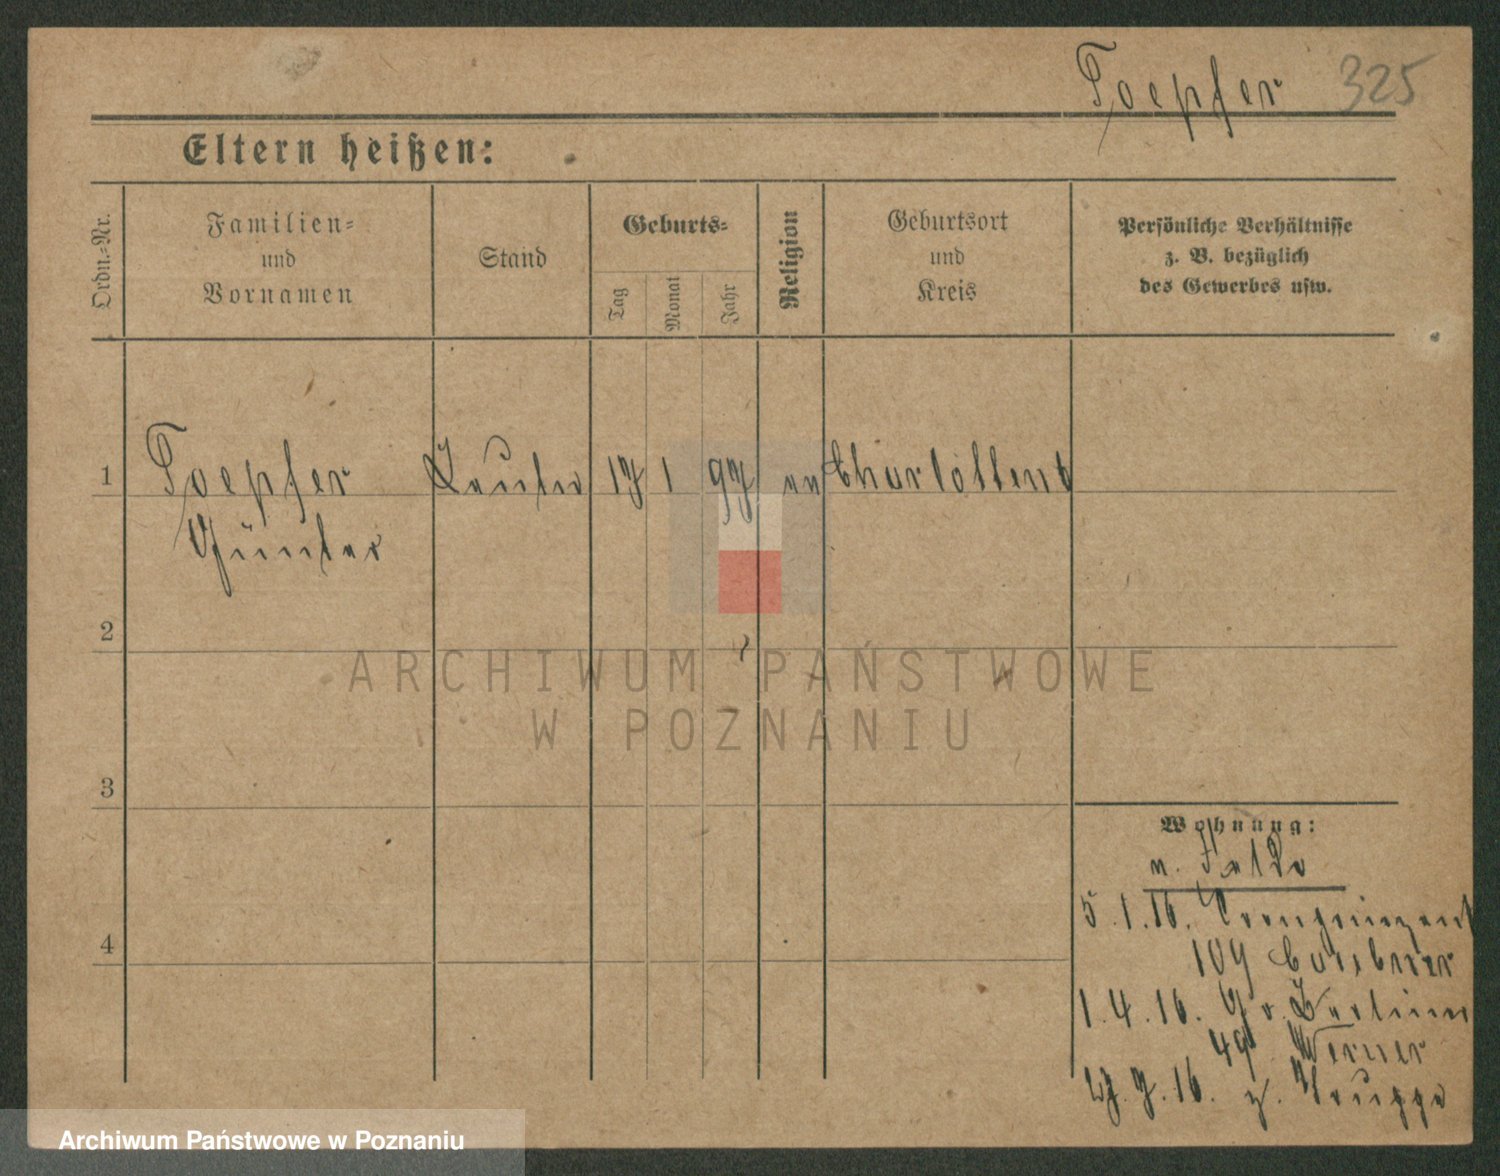 Toepfer 325
Eltern heißen:
Ordn.-Nr.
Familien-
und
Vornamen
Stand
Geburts-
Tag
Monat
Jahr
Religion
Geburtsort
und
Kreis
Persönliche Verhältnisse
z. B. bezüglich
des Gewerbes usw.
1 Toepfer 17 1 97 ev Charlottenb
Günter
2
3
4
Wohnung:
n. Halbd
5.1.16.
109
1.4.16. Gr. Berliner
49 Werner
27.7.16. z. Truppe
ARCHIWUM PAŃSTWOWE
W POZNANIU
Archiwum Państwowe w Poznaniu